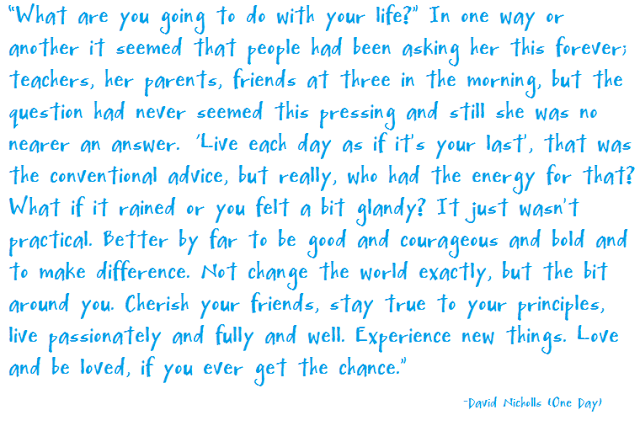 "What are you going to do with your life?" In one way or
another it seemed that people had been asking her this forever;
teachers, her parents, friends at three in the morning, but the
question had never seemed this pressing and still she was no
nearer an answer. 'Live each day as if it's your last', that was
the conventional advice, but really, who had the energy for that?
What if it rained or you felt a bit glandy? It just wasn't
practical. Better by far to be good and courageous and bold and
to make difference. Not change the world exactly, but the bit
around you. Cherish your friends, stay true to your principles,
live passionately and fully and well. Experience new things. Love
and be loved, if you ever get the chance."
-David Nicholls (One Day)